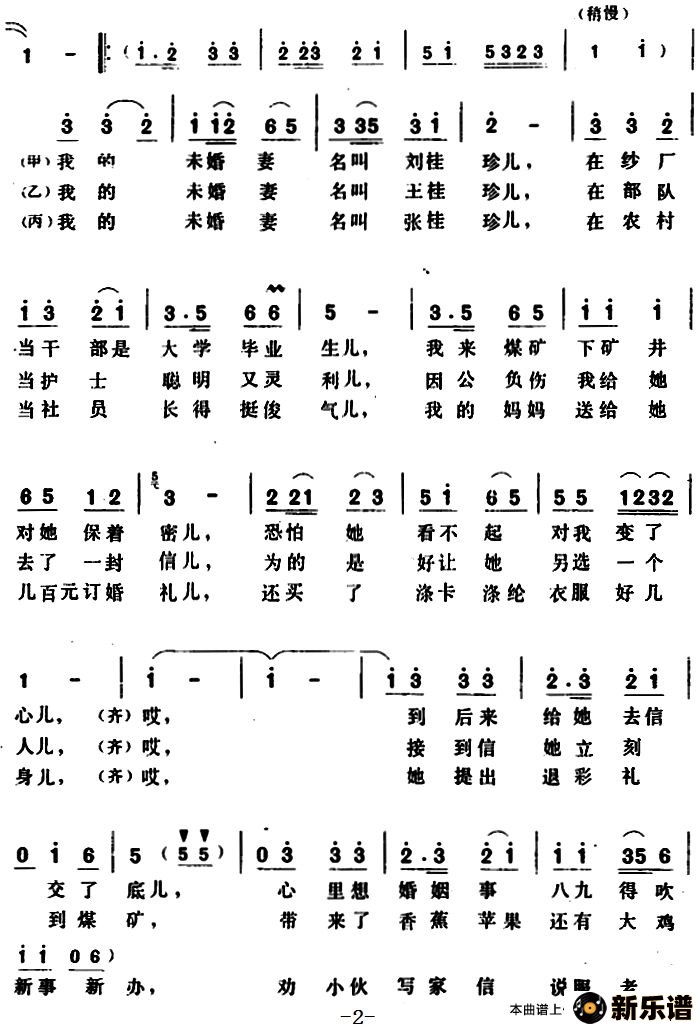 （稍慢）
1 - ‖: (1·2 3 3 | 2 23 2 1 | 5 1 5323 | 1 1 )|
3 3 2 | 1 12 6 5 | 3 35 3 1 | 2 - | 3 3 2 |
（甲）我的 未婚妻 名叫刘桂珍儿，在纱厂
（乙）我的 未婚妻 名叫王桂珍儿，在部队
（丙）我的 未婚妻 名叫张桂珍儿，在农村
1 3 2 1 | 3·5 6 6 | 5 - | 3·5 6 5 | 1 1 1
当干部是大学毕业生儿，我来煤矿下矿井
当护士聪明又灵利儿，因公负伤我给她
当社员长得挺俊气儿，我的妈妈送给她
6 5 1 2 | 5 3 - | 2 21 2 3 | 5 1 6 5 | 5 5 1232
对她保着密儿，恐怕她看不起对我变了
去了一封信儿，为的是好让她另选一个
几百元订婚礼儿，还买了涤卡涤纶衣服好几
1 - | 1 - | 1 - | 1 3 3 3 | 2·3 2 1
心儿，（齐）哎，到后来给她去信
人儿，（齐）哎，接到信她立刻
身儿，（齐）哎，她提出退彩礼
0 1 6 | 5 (5 5) | 0 3 3 3 | 2·3 2 1 | 1 1 35 6
交了底儿，心里想婚姻事八九得吹
到煤矿，带来了香蕉苹果还有大鸡
1 1 0 6 )
新事新办，劝小伙写家信说服老
-2-
本曲谱上
新乐谱